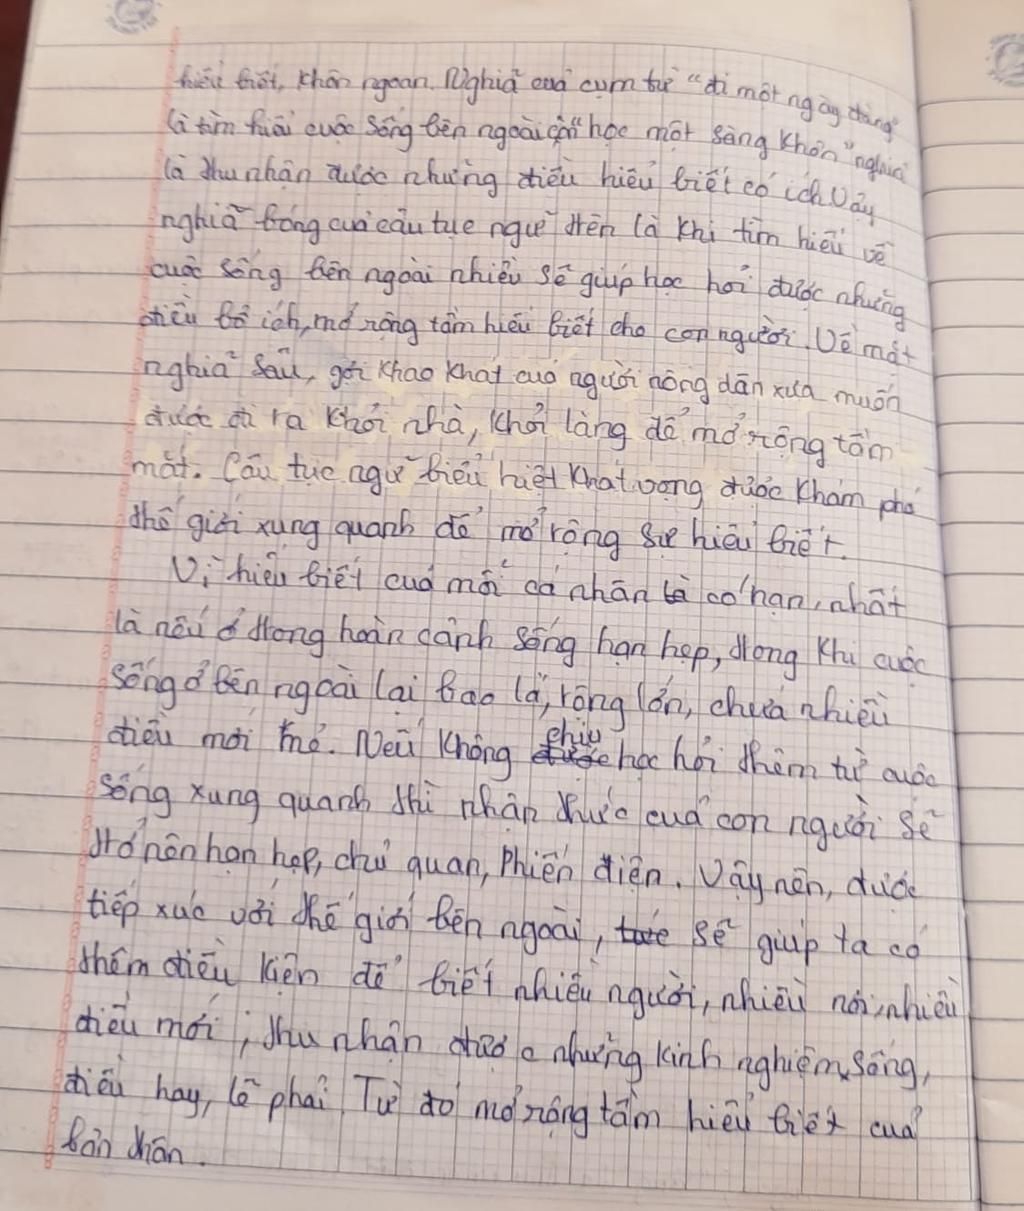 hiểu biết, khôn ngoan. Nghĩa của cụm từ "đi một ngày đàng"
là tìm hiểu cuộc sống bên ngoài còn "học một sàng khôn" nghĩa
là thu nhận được những điều hiểu biết có ích. Vậy
nghĩa bóng của câu tục ngữ trên là khi tìm hiểu về
cuộc sống bên ngoài nhiều sẽ giúp học hỏi được những
điều bổ ích, mở rộng tầm hiểu biết cho con người. Về mặt
nghĩa sâu, gợi khao khát của người nông dân xưa muốn
được đi ra khỏi nhà, khỏi làng để mở rộng tầm
mắt. Câu tục ngữ biểu hiệt khát vọng được khám phá
thế giới xung quanh để mở rộng sự hiểu biết.
Vì hiểu biết của mỗi cá nhân là có hạn, nhất
là nếu ở trong hoàn cảnh sống hạn hẹp, trong khi cuộc
sống ở bên ngoài lại bao la, rộng lớn, chứa nhiều
điều mới mẻ. Nếu không chịu học hỏi thêm từ cuộc
sống xung quanh thì nhận thức của con người sẽ
trở nên hạn hẹp, chủ quan, phiến diện. Vậy nên, được
tiếp xúc với thế giới bên ngoài, sẽ giúp ta có
thêm điều kiện để biết nhiều người, nhiều nơi, nhiều
điều mới, thu nhận được những kinh nghiệm sống,
điều hay, lẽ phải. Từ đó mở rộng tầm hiểu biết của
bản thân.